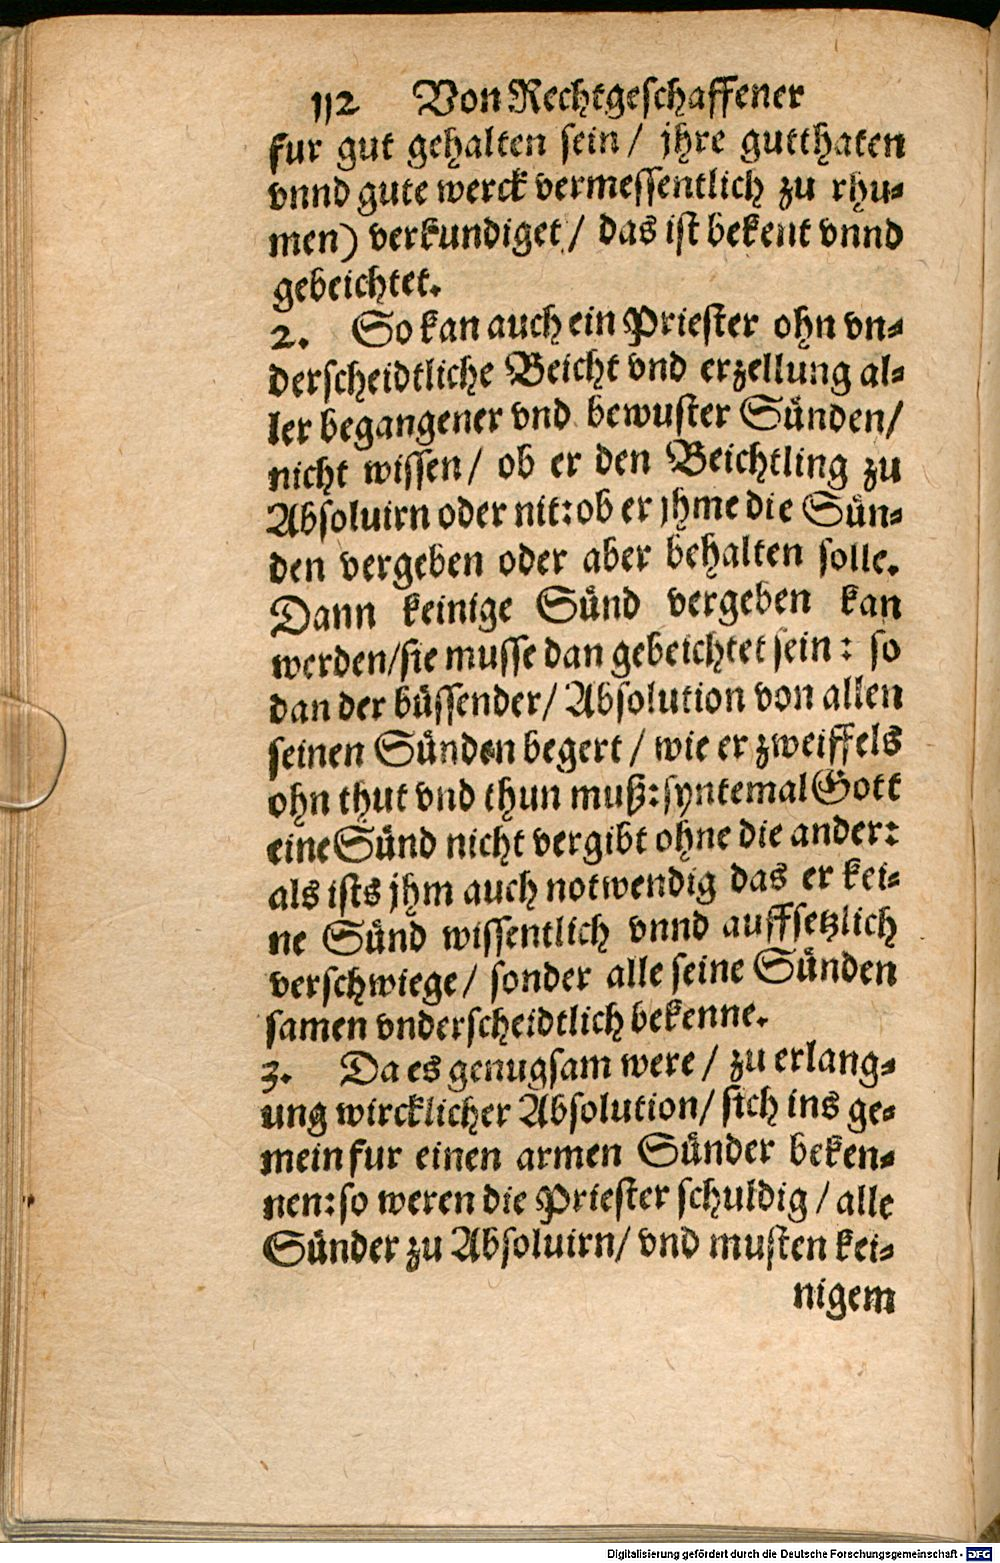 112 Von Rechtgeschaffener
fur gut gehalten sein / jhre gutthaten
vnnd gute werck vermessentlich zu rhu⸗
men) verkundiget / das ist bekent vnnd
gebeichtet.
2. So kan auch ein Priester ohn vn⸗
derscheidtliche Beicht vnd erzellung al⸗
ler begangener vnd bewuster Sünden /
nicht wissen / ob er den Beichtling zu
Absoluirn oder nit: ob er jhme die Sün⸗
den vergeben oder aber behalten solle.
Dann keinige Sünd vergeben kan
werden / sie musse dan gebeichtet sein : so
dan der büssender / Absolution von allen
seinen Sünden begert / wie er zweiffels
ohn thut vnd thun muß: syntemal Gott
eine Sünd nicht vergibt ohne die ander:
als ists jhm auch notwendig das er kei⸗
ne Sünd wissentlich vnnd auffsetzlich
verschwiege / sonder alle seine Sünden
samen vnderscheidtlich bekenne.
3. Da es genugsam were / zu erlang⸗
ung wircklicher Absolution / sich ins ge⸗
mein fur einen armen Sünder beken⸗
nen: so weren die Priester schuldig / alle
Sünder zu Absoluirn / vnd musten kei⸗
nigem
Digitalisierung gefördert durch die Deutsche Forschungsgemeinschaft - DFG